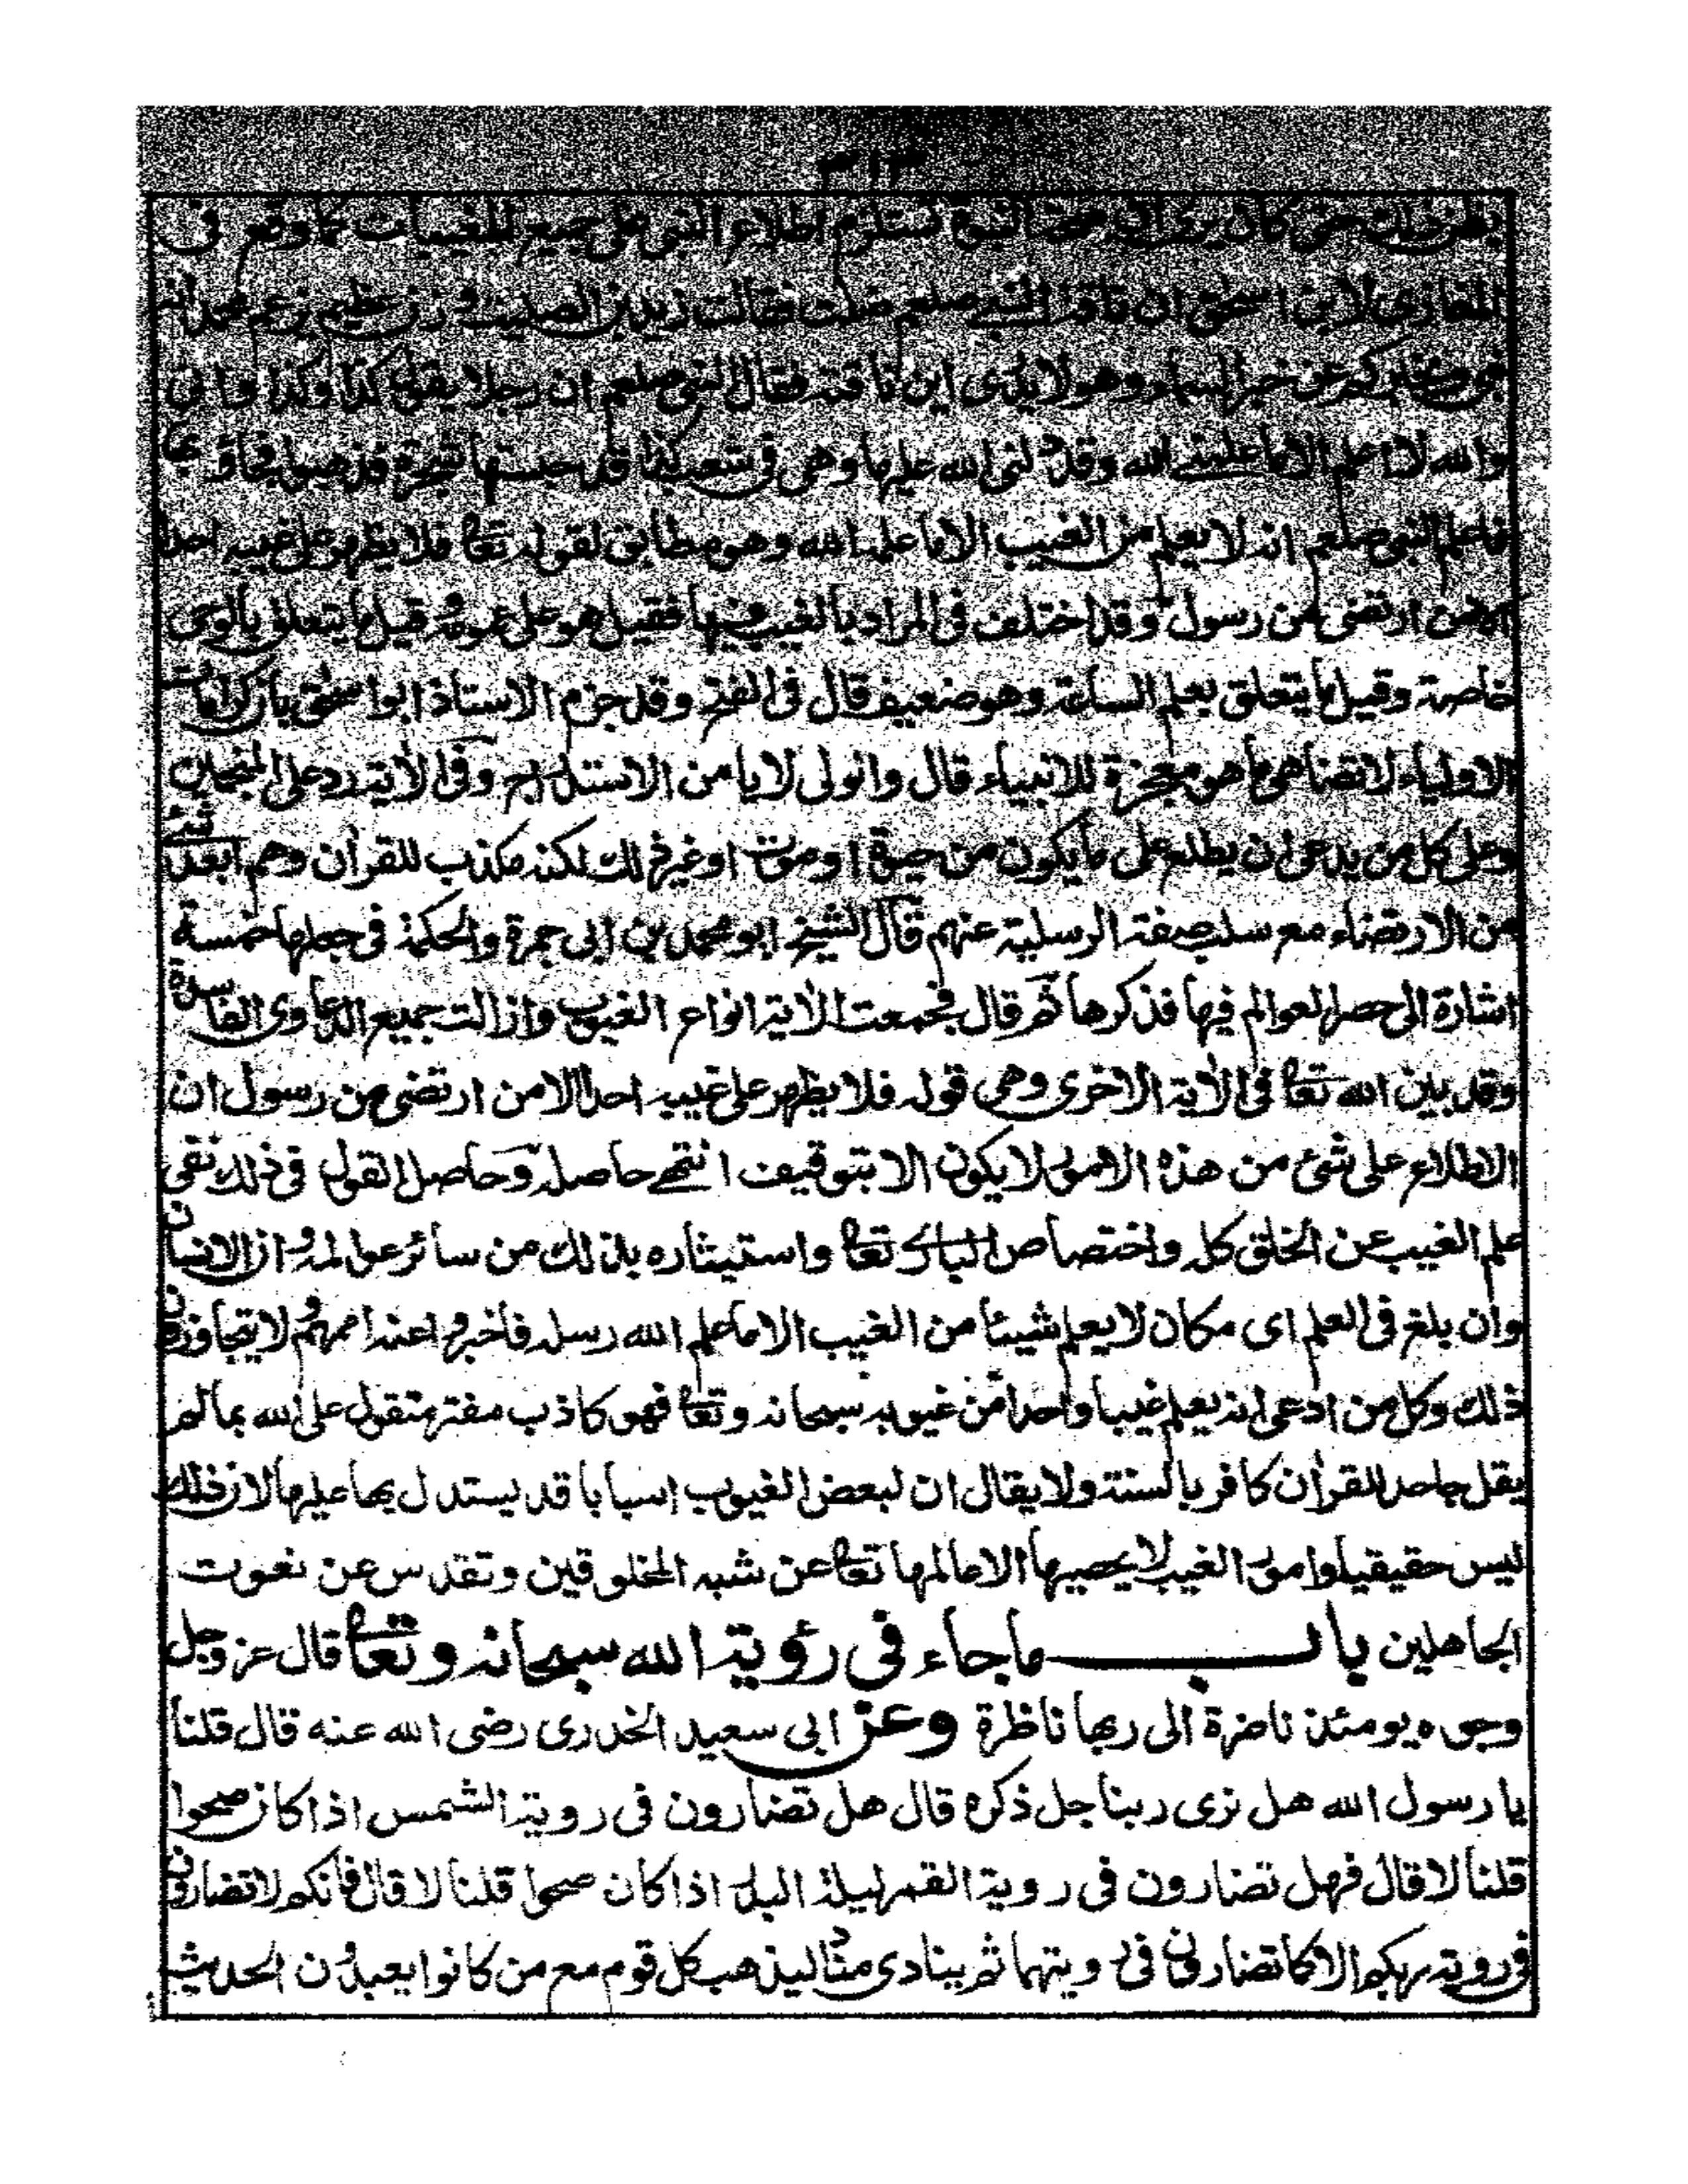 ٣١٣
يظن ذلك حتى كان يرى ان صحة النبوة تستلزم اطلاع النبى على جميع المغيبات كما وقع فى
المغازى لابن اسحق ان ناقة النبى صلعم ضلت فقالت زيد بن الصليت يزعم محمد انه
نبى ويخبركم عن خبر السماء وهو لا يدرى اين ناقته فقال النبى صلعم ان رجلا يقول كذا وكذا وانى
والله لا اعلم الا ما علمنى الله وقد دلنى الله عليها وهى فى شعب كذا قد حبستها شجرة فذهبوا فجاؤ بها
فاعلم النبى صلعم انه لا يعلم من الغيب الا ما علمه الله وهو مطابق لقوله تعا فلا يظهر على غيبه احدا
الا من ارتضى من رسول وقد اختلف فى المراد بالغيب فيها فقيل هو على عمومه وقيل ما يتعلق بالوحى
خاصة وقيل ما يتعلق بعلم الساعة وهو ضعيف قال فى الفتح وقد جزم الاستاذ ابو اسحق بان كرامات
الاولياء لا تضاهى ما هو معجزة للانبياء قال والولى لا يامن الاستدراج وفى الآية رد على المنجمين
وعلى كل من يدعى ان يطلع على ما يكون من حيوة او موت او غير ذلك لكنه مكذب للقرأن وهم ابعد شئ
من الارتضاء مع سلب صفة الرسلية عنهم قال الشيخ ابو محمد بن ابى جمرة والحكمة فى جعلها خمسة
اشارة الى حصر العوالم فيها فذكرها ثم قال فجمعت الآية انواع الغيوب وازالت جميع الدعاوى الفاسدة
وقد بين الله تعا فى الآية الاخرى وهى قوله فلا يظهر على غيبه احدا الا من ارتضى من رسول ان
الاطلاع على شئ من هذه الامور لا يكون الا بتوقيف انتهى حاصله وحاصل القول فى ذلك نفى
علم الغيب عن الخلق كله واختصاص البارى تعا واستيثاره بذلك من سائر عوالمه وان الانسان
وان بلغ فى العلم اى مكان لا يعلم شيئا من الغيب الا ما علم الله رسله فاخبروا عنه اممهم ولا يتجاوزون
ذلك وكل من ادعى انه يعلم غيبا واحدا من غيوبه سبحانه وتعا فهو كاذب مفتر متقول على الله بما لم
يقل جاحد للقرأن كافر بالسنة ولا يقال ان لبعض الغيوب اسبابا قد يستدل بها عليها لان ذلك
ليس حقيقيا وامور الغيب لا يحصيها الا عالمها تعا عن شبه المخلوقين وتقدس عن نعوت
الجاهلين باب ما جاء فى رؤية الله سبحانه وتعا قال عز وجل
وجوه يومئذ ناضرة الى ربها ناظرة وعن ابى سعيد الخدرى رضى الله عنه قال قلنا
يا رسول الله هل نرى ربنا جل ذكره قال هل تضارون فى روية الشمس اذا كان صحوا
قلنا لا قال فهل تضارون فى روية القمر ليلة البدر اذا كان صحوا قلنا لا قال فانكم لا تضارون
فى روية ربكم الا كما تضارون فى رويتهما ثم ينادى مناد ليذهب كل قوم مع من كانوا يعبدون الحديث